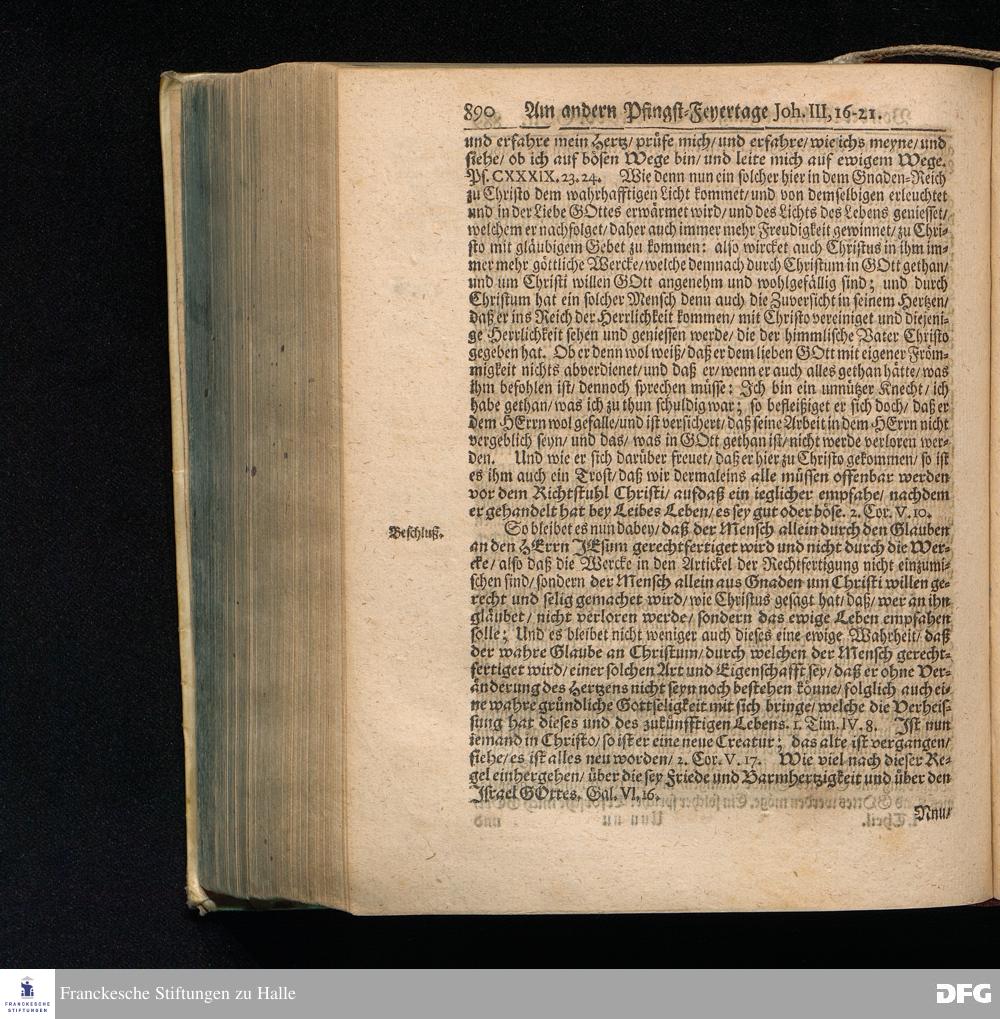 890 Am andern Pfingst-Feyertage Joh. III, 16-21.
und erfahre mein Hertz/ prüfe mich/ und erfahre/ wie ichs meyne/ und
siehe/ ob ich auf bösen Wege bin/ und leite mich auf ewigem Wege.
Ps. CXXXIX. 23. 24. Wie denn nun ein solcher hier in dem Gnaden-Reich
zu Christo dem wahrhafftigen Licht kommet/ und von demselbigen erleuchtet
und in der Liebe GOttes erwärmet wird/ und des Lichts des Lebens geniesset/
welchem er nachfolget/ daher auch immer mehr Freudigkeit gewinnet/ zu Chri-
sto mit gläubigem Gebet zu kommen: also wircket auch Christus in ihm im-
mer mehr göttliche Wercke/ welche demnach durch Christum in GOtt gethan/
und um Christi willen GOtt angenehm und wohlgefällig sind; und durch
Christum hat ein solcher Mensch denn auch die Zuversicht in seinem Hertzen/
daß er ins Reich der Herrlichkeit kommen/ mit Christo vereiniget und diejeni-
ge Herrlichkeit sehen und geniessen werde/ die der himmlische Vater Christo
gegeben hat. Ob er denn wol weiß/ daß er dem lieben GOtt mit eigener Fröm-
migkeit nichts abverdienet/ und daß er/ wenn er auch alles gethan hätte/ was
ihm befohlen ist/ dennoch sprechen müsse: Ich bin ein unnützer Knecht/ ich
habe gethan/ was ich zu thun schuldig war; so befleißiget er sich doch/ daß er
dem HErrn wol gefalle/ und ist versichert/ daß seine Arbeit in dem HErrn nicht
vergeblich seyn/ und das/ was in GOtt gethan ist/ nicht werde verloren wer-
den. Und wie er sich darüber freuet/ daß er hier zu Christo gekommen/ so ist
es ihm auch ein Trost/ daß wir dermaleins alle müssen offenbar werden
vor dem Richtstuhl Christi/ aufdaß ein ieglicher empfahe/ nachdem
er gehandelt hat bey Leibes Leben/ es sey gut oder böse. 2. Cor. V. 10.
Beschluß.
So bleibet es nun dabey/ daß der Mensch allein durch den Glauben
an den HErrn JEsum gerechtfertiget wird und nicht durch die Wer-
cke/ also daß die Wercke in den Artickel der Rechtfertigung nicht einzumi-
schen sind/ sondern der Mensch allein aus Gnaden um Christi willen ge-
recht und selig gemachet wird/ wie Christus gesagt hat/ daß/ wer an ihn
gläubet/ nicht verloren werde/ sondern das ewige Leben empfahen
solle; Und es bleibet nicht weniger auch dieses eine ewige Wahrheit/ daß
der wahre Glaube an Christum/ durch welchen der Mensch gerecht-
fertiget wird/ einer solchen Art und Eigenschafft sey/ daß er ohne Ver-
änderung des Hertzens nicht seyn noch bestehen könne/ folglich auch ei-
ne wahre gründliche Gottseligkeit mit sich bringe/ welche die Verheis-
sung hat dieses und des zukünfftigen Lebens. 1. Tim. IV. 8. Ist nun
iemand in Christo/ so ist er eine neue Creatur; das alte ist vergangen/
siehe/ es ist alles neu worden/ 2. Cor. V. 17. Wie viel nach dieser Re-
gel einhergehen/ über die sey Friede und Barmhertzigkeit und über den
Israel GOttes. Gal. VI, 16.
Nnu/
FRANCKESCHE
STIFTUNGEN
Franckesche Stiftungen zu Halle
DFG